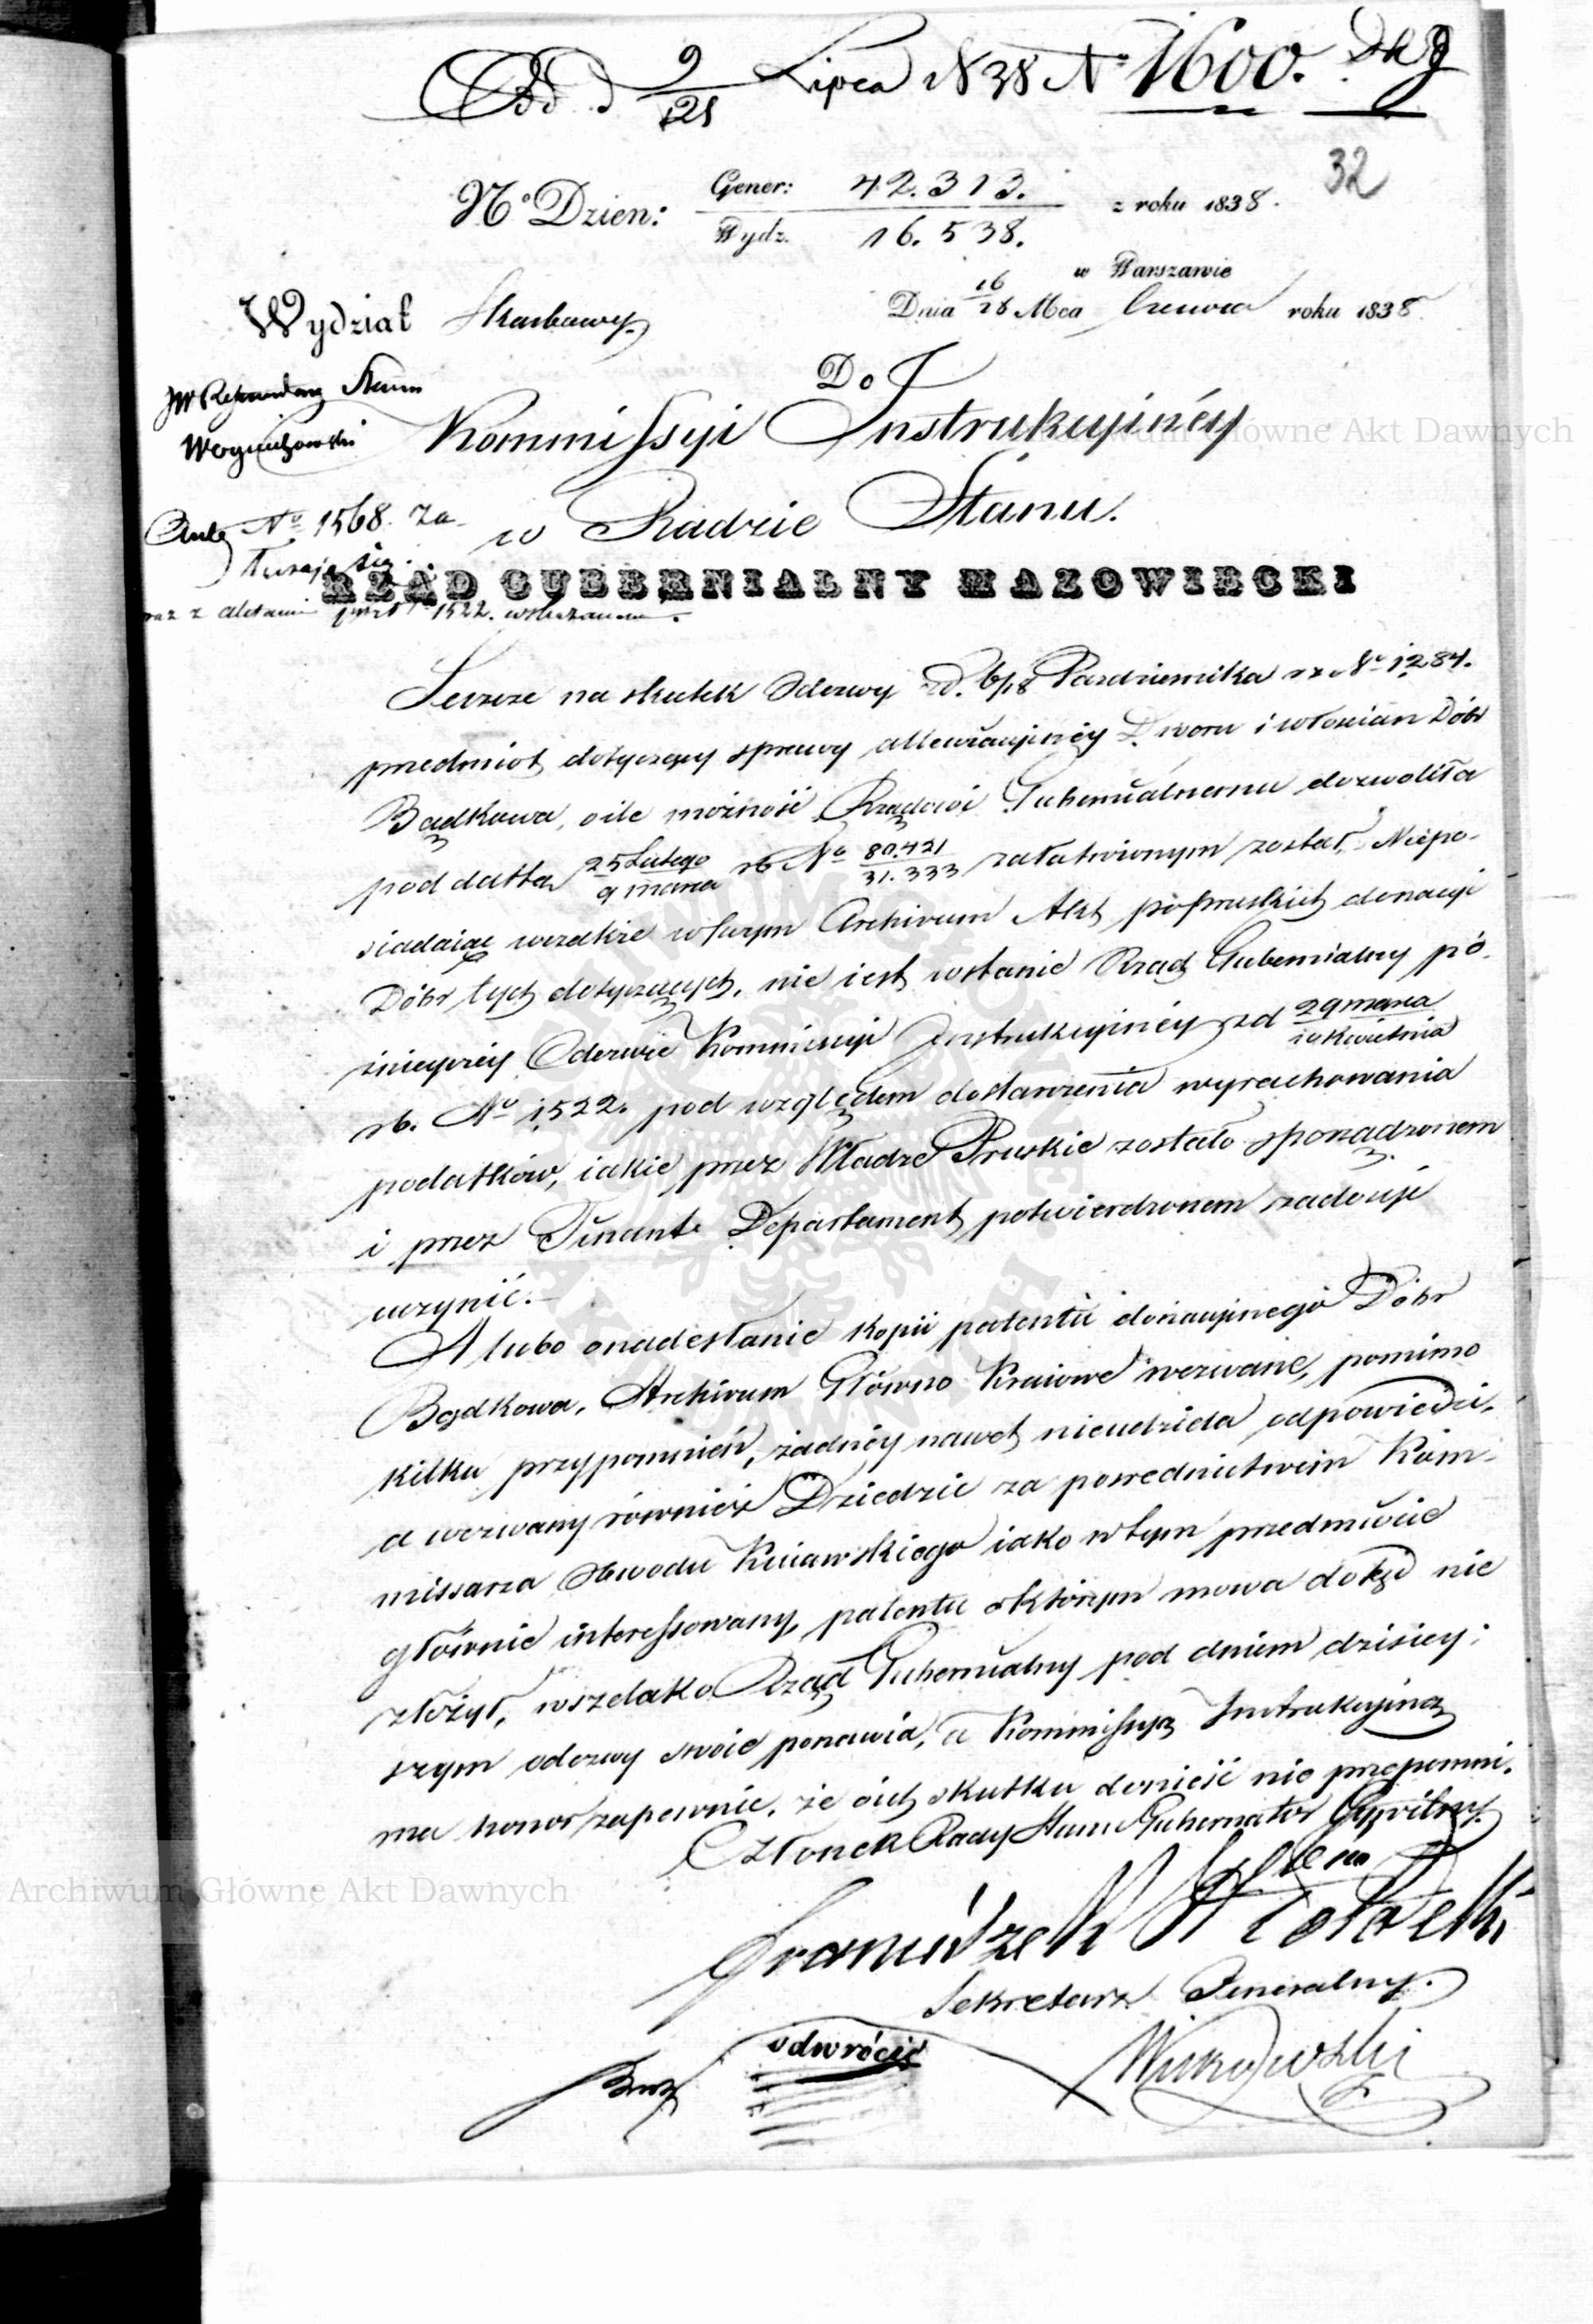 Od d 9/21 Lipca 1838 No 1600.
32
No Dzien: Gener: 42.313. z roku 1838.
Wydz. 16.538.
w Warszawie
Dnia 16/28 Mca Czerwca roku 1838
Wydział Skarbowy.
Do
Kommissyi Instrukcyinéy
w Radzie Stanu.
JW Referendarz Stanu
Ante No 1568. Za-
łącza się
raz z aktami 1522.
RZĄD GUBERNIALNY MAZOWIECKI
Jeszcze na skutek Odezwy z d. 6/18 Pazdziernika No 1284.
przedmiot dotyczący sprawy Dworu i włoscian Dóbr
Bądkowa, o ile możność Rządowi Gubernialnemu dozwoliła
pod datta 25 Lutego/9 marca rb No 80.421/31.333 załatwionym został. Niepo-
siadaiąc wszakże w swym Archivum Akt popruskich donacyi
Dóbr tych dotyczących, nie iest wstanie Rząd Gubernialny pó-
źnieyszéy Odezwie Kommissyi Instrukcyinéy z d 29 marca/10 Kwietnia
rb. No 1522. pod względem dostarczenia wyrachowania
podatków, iakie przez Władze Pruskie zostało sporządzonem
i przez Finantz Departament potwierdzonem zadosyć
uczynić.-
A lubo o nadesłanie kopii patentu donacyinego Dóbr
Bądkowa, Archivum Główno Kraiowe wezwane, pomimo
kilku przypomnień, żadnéy nawet nieudziela odpowiedzi,
a wezwany również Dziedzic za posrednictwem Kom-
missarza Obwodu Kuiawskiego iako w tym przedmiocie
głównie interessowany, patentu o którym mowa dotąd nie
złożył, wszelako Rząd Gubernialny pod dniem dzisiey-
szym odezwy swoie ponawia, a Kommissyą Instrukcyiną
ma honor zapewnić, że o ich skutku donieść nie przepomni.
Członek Rady Stanu Gubernator Cywilny
Sekretarz Generalny.
odwrócić
Archiwum Główne Akt Dawnych